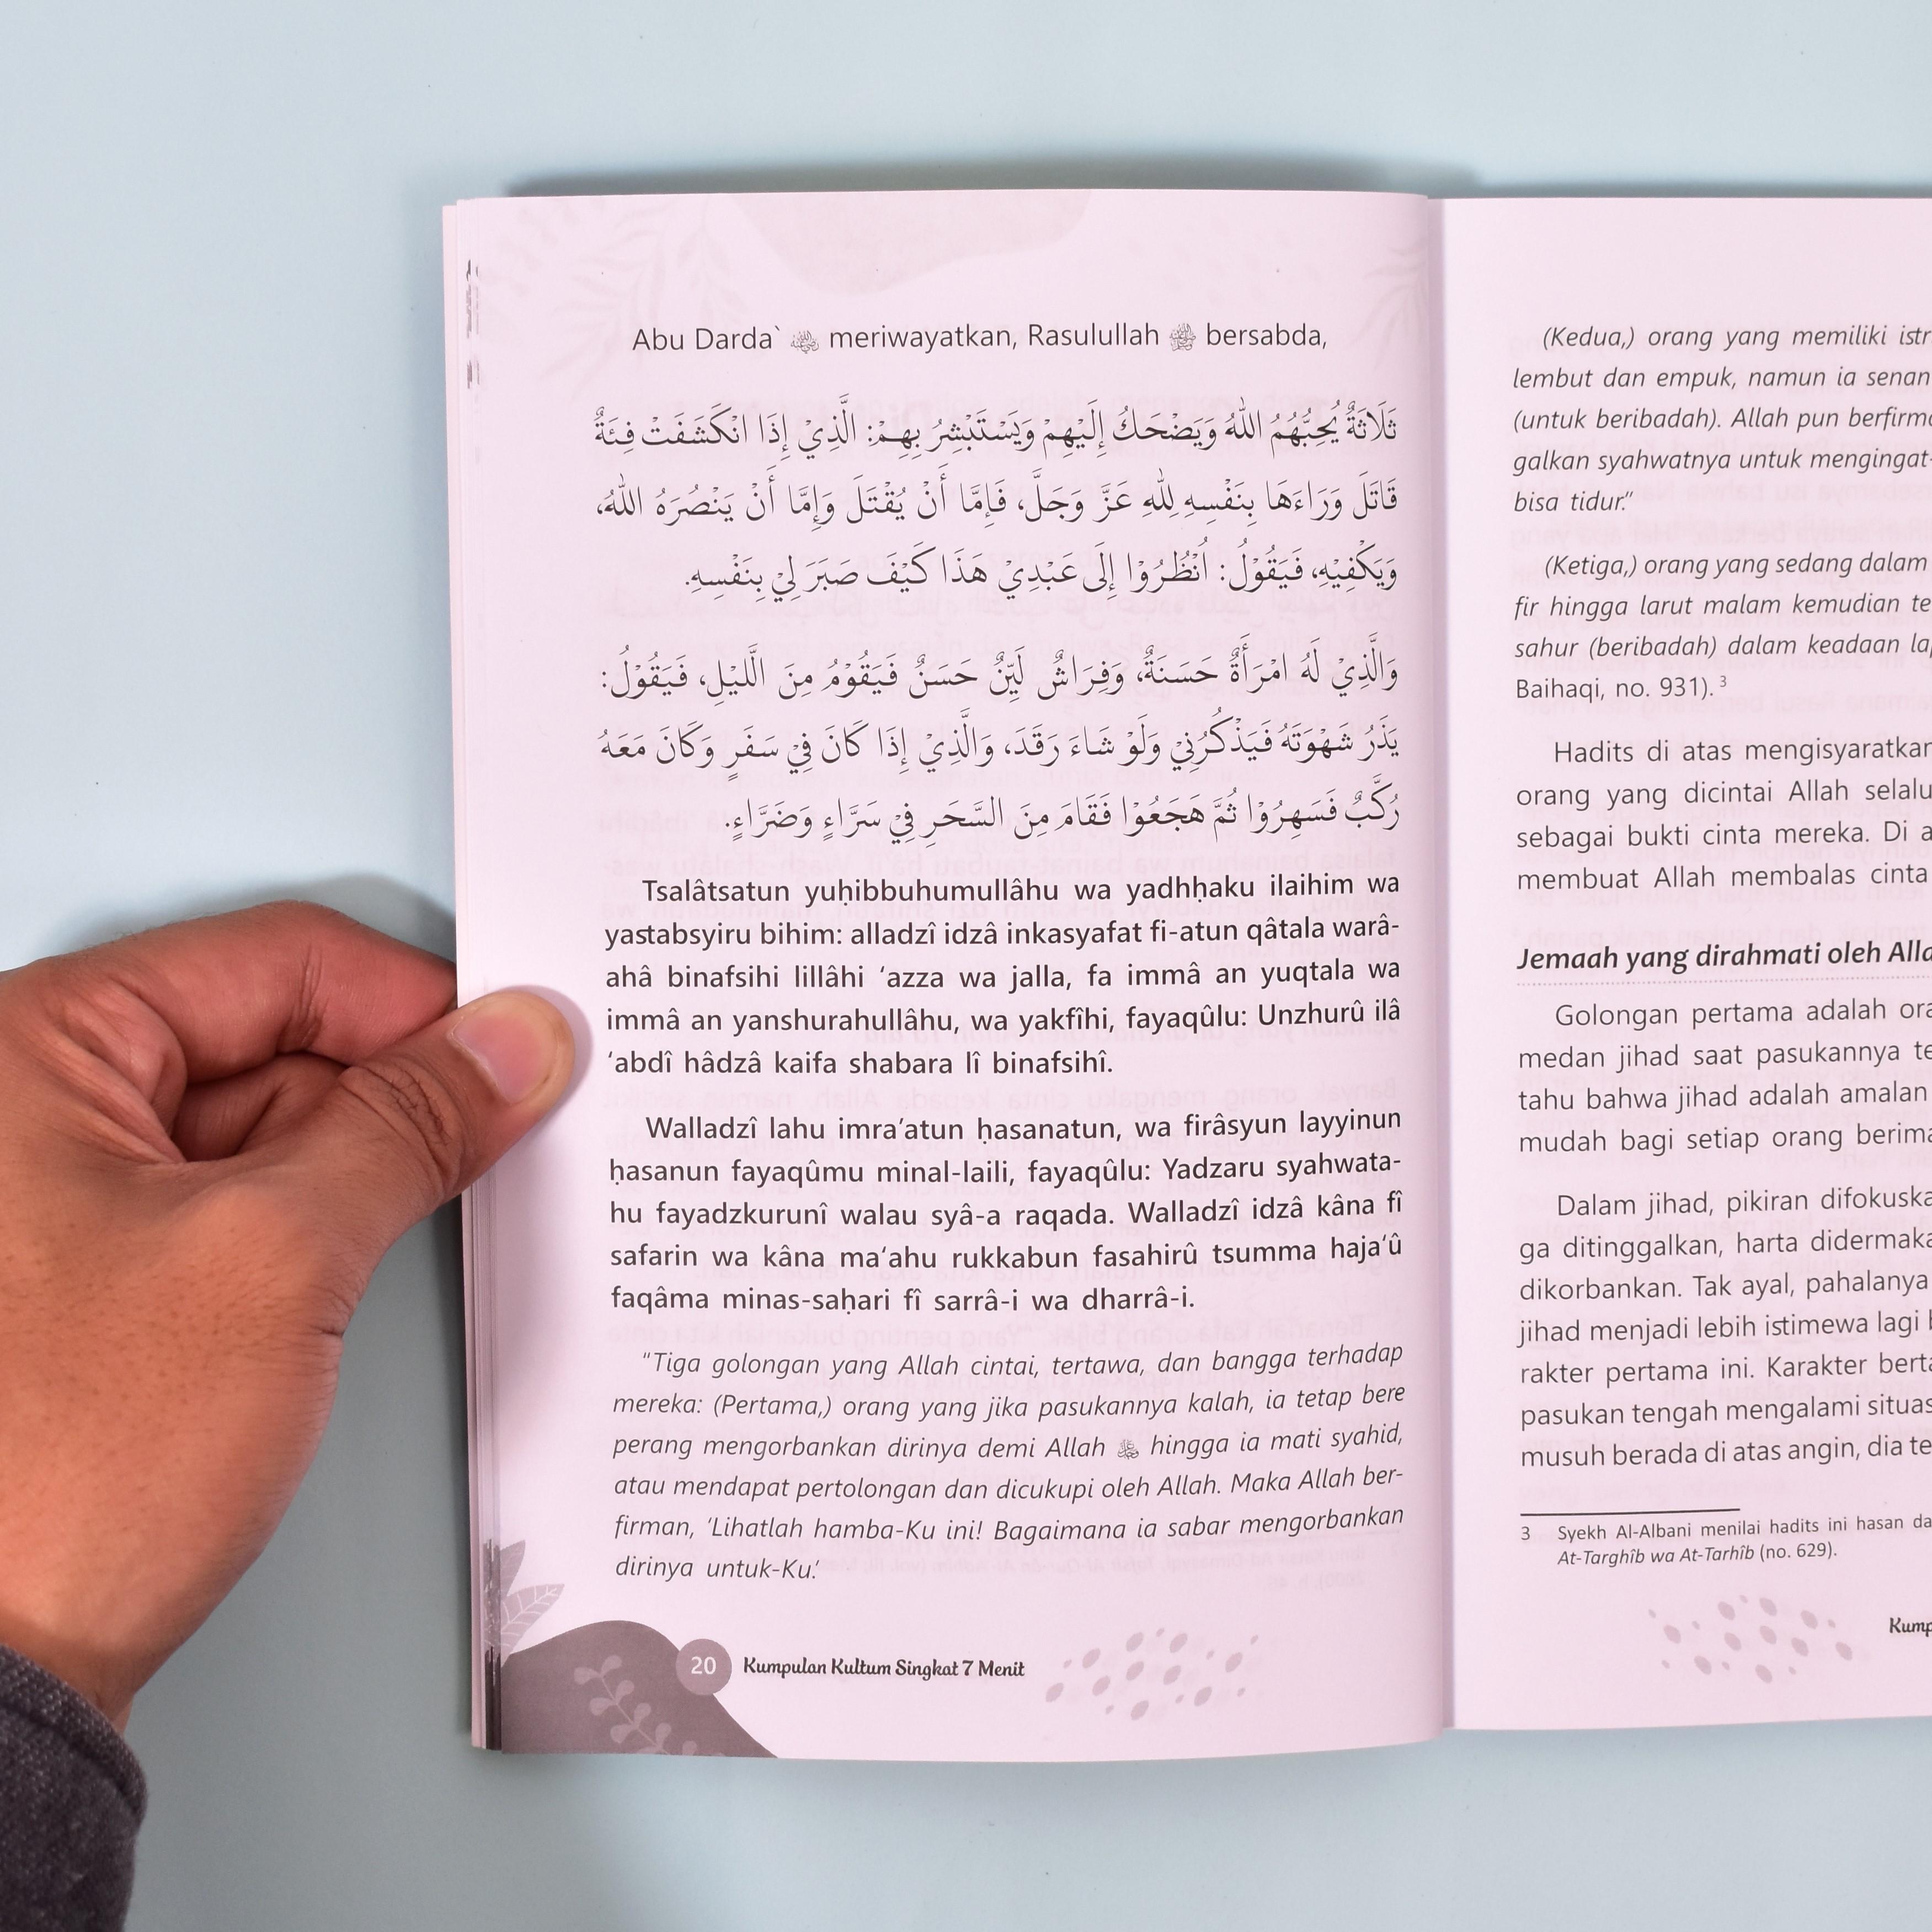 Abu Darda` ؓ meriwayatkan, Rasulullah ﷺ bersabda,
ثَلَاثَةٌ يُحِبُّهُمُ اللهُ وَيَضْحَكُ إِلَيْهِمْ وَيَسْتَبْشِرُ بِهِمْ: الَّذِيْ إِذَا انْكَشَفَتْ فِئَةٌ
قَاتَلَ وَرَاءَهَا بِنَفْسِهِ لِلهِ عَزَّ وَجَلَّ، فَإِمَّا أَنْ يُقْتَلَ وَإِمَّا أَنْ يَنْصُرَهُ اللهُ،
وَيَكْفِيْهِ، فَيَقُوْلُ: اُنْظُرُوْا إِلَى عَبْدِيْ هَذَا كَيْفَ صَبَرَ لِيْ بِنَفْسِهِ.
وَالَّذِيْ لَهُ امْرَأَةٌ حَسَنَةٌ، وَفِرَاشٌ لَيِّنٌ حَسَنٌ فَيَقُوْمُ مِنَ اللَّيْلِ، فَيَقُوْلُ:
يَذَرُ شَهْوَتَهُ فَيَذْكُرُنِيْ وَلَوْ شَاءَ رَقَدَ، وَالَّذِيْ إِذَا كَانَ فِيْ سَفَرٍ وَكَانَ مَعَهُ
رُكَّبٌ فَسَهِرُوْا ثُمَّ هَجَعُوْا فَقَامَ مِنَ السَّحَرِ فِيْ سَرَّاءٍ وَضَرَّاءٍ.
Tsalâtsatun yuḥibbuhumullâhu wa yadhḥaku ilaihim wa
yastabsyiru bihim: alladzî idzâ inkasyafat fi-atun qâtala warâ-
ahâ binafsihi lillâhi ‘azza wa jalla, fa immâ an yuqtala wa
immâ an yanshurahullâhu, wa yakfîhi, fayaqûlu: Unzhurû ilâ
‘abdî hâdzâ kaifa shabara lî binafsihî.
Walladzî lahu imra’atun ḥasanatun, wa firâsyun layyinun
ḥasanun fayaqûmu minal-laili, fayaqûlu: Yadzaru syahwata-
hu fayadzkurunî walau syâ-a raqada. Walladzî idzâ kâna fî
safarin wa kâna ma‘ahu rukkabun fasahirû tsumma haja‘û
faqâma minas-saḥari fî sarrâ-i wa dharrâ-i.
“Tiga golongan yang Allah cintai, tertawa, dan bangga terhadap
mereka: (Pertama,) orang yang jika pasukannya kalah, ia tetap bere
perang mengorbankan dirinya demi Allah ﷻ hingga ia mati syahid,
atau mendapat pertolongan dan dicukupi oleh Allah. Maka Allah ber-
firman, ‘Lihatlah hamba-Ku ini! Bagaimana ia sabar mengorbankan
dirinya untuk-Ku.’
20 Kumpulan Kultum Singkat 7 Menit
(Kedua,) orang yang memiliki istr
lembut dan empuk, namun ia senan
(untuk beribadah). Allah pun berfirma
galkan syahwatnya untuk mengingat-
bisa tidur.”
(Ketiga,) orang yang sedang dalam
fir hingga larut malam kemudian te
sahur (beribadah) dalam keadaan la
Baihaqi, no. 931). 3
Hadits di atas mengisyaratkan
orang yang dicintai Allah selalu
sebagai bukti cinta mereka. Di a
membuat Allah membalas cinta
Jemaah yang dirahmati oleh Alla
Golongan pertama adalah ora
medan jihad saat pasukannya te
tahu bahwa jihad adalah amalan
mudah bagi setiap orang berima
Dalam jihad, pikiran difokuska
ga ditinggalkan, harta didermaka
dikorbankan. Tak ayal, pahalanya
jihad menjadi lebih istimewa lagi b
rakter pertama ini. Karakter berta
pasukan tengah mengalami situas
musuh berada di atas angin, dia te
3 Syekh Al-Albani menilai hadits ini hasan da
At-Targhîb wa At-Tarhîb (no. 629).
Kump